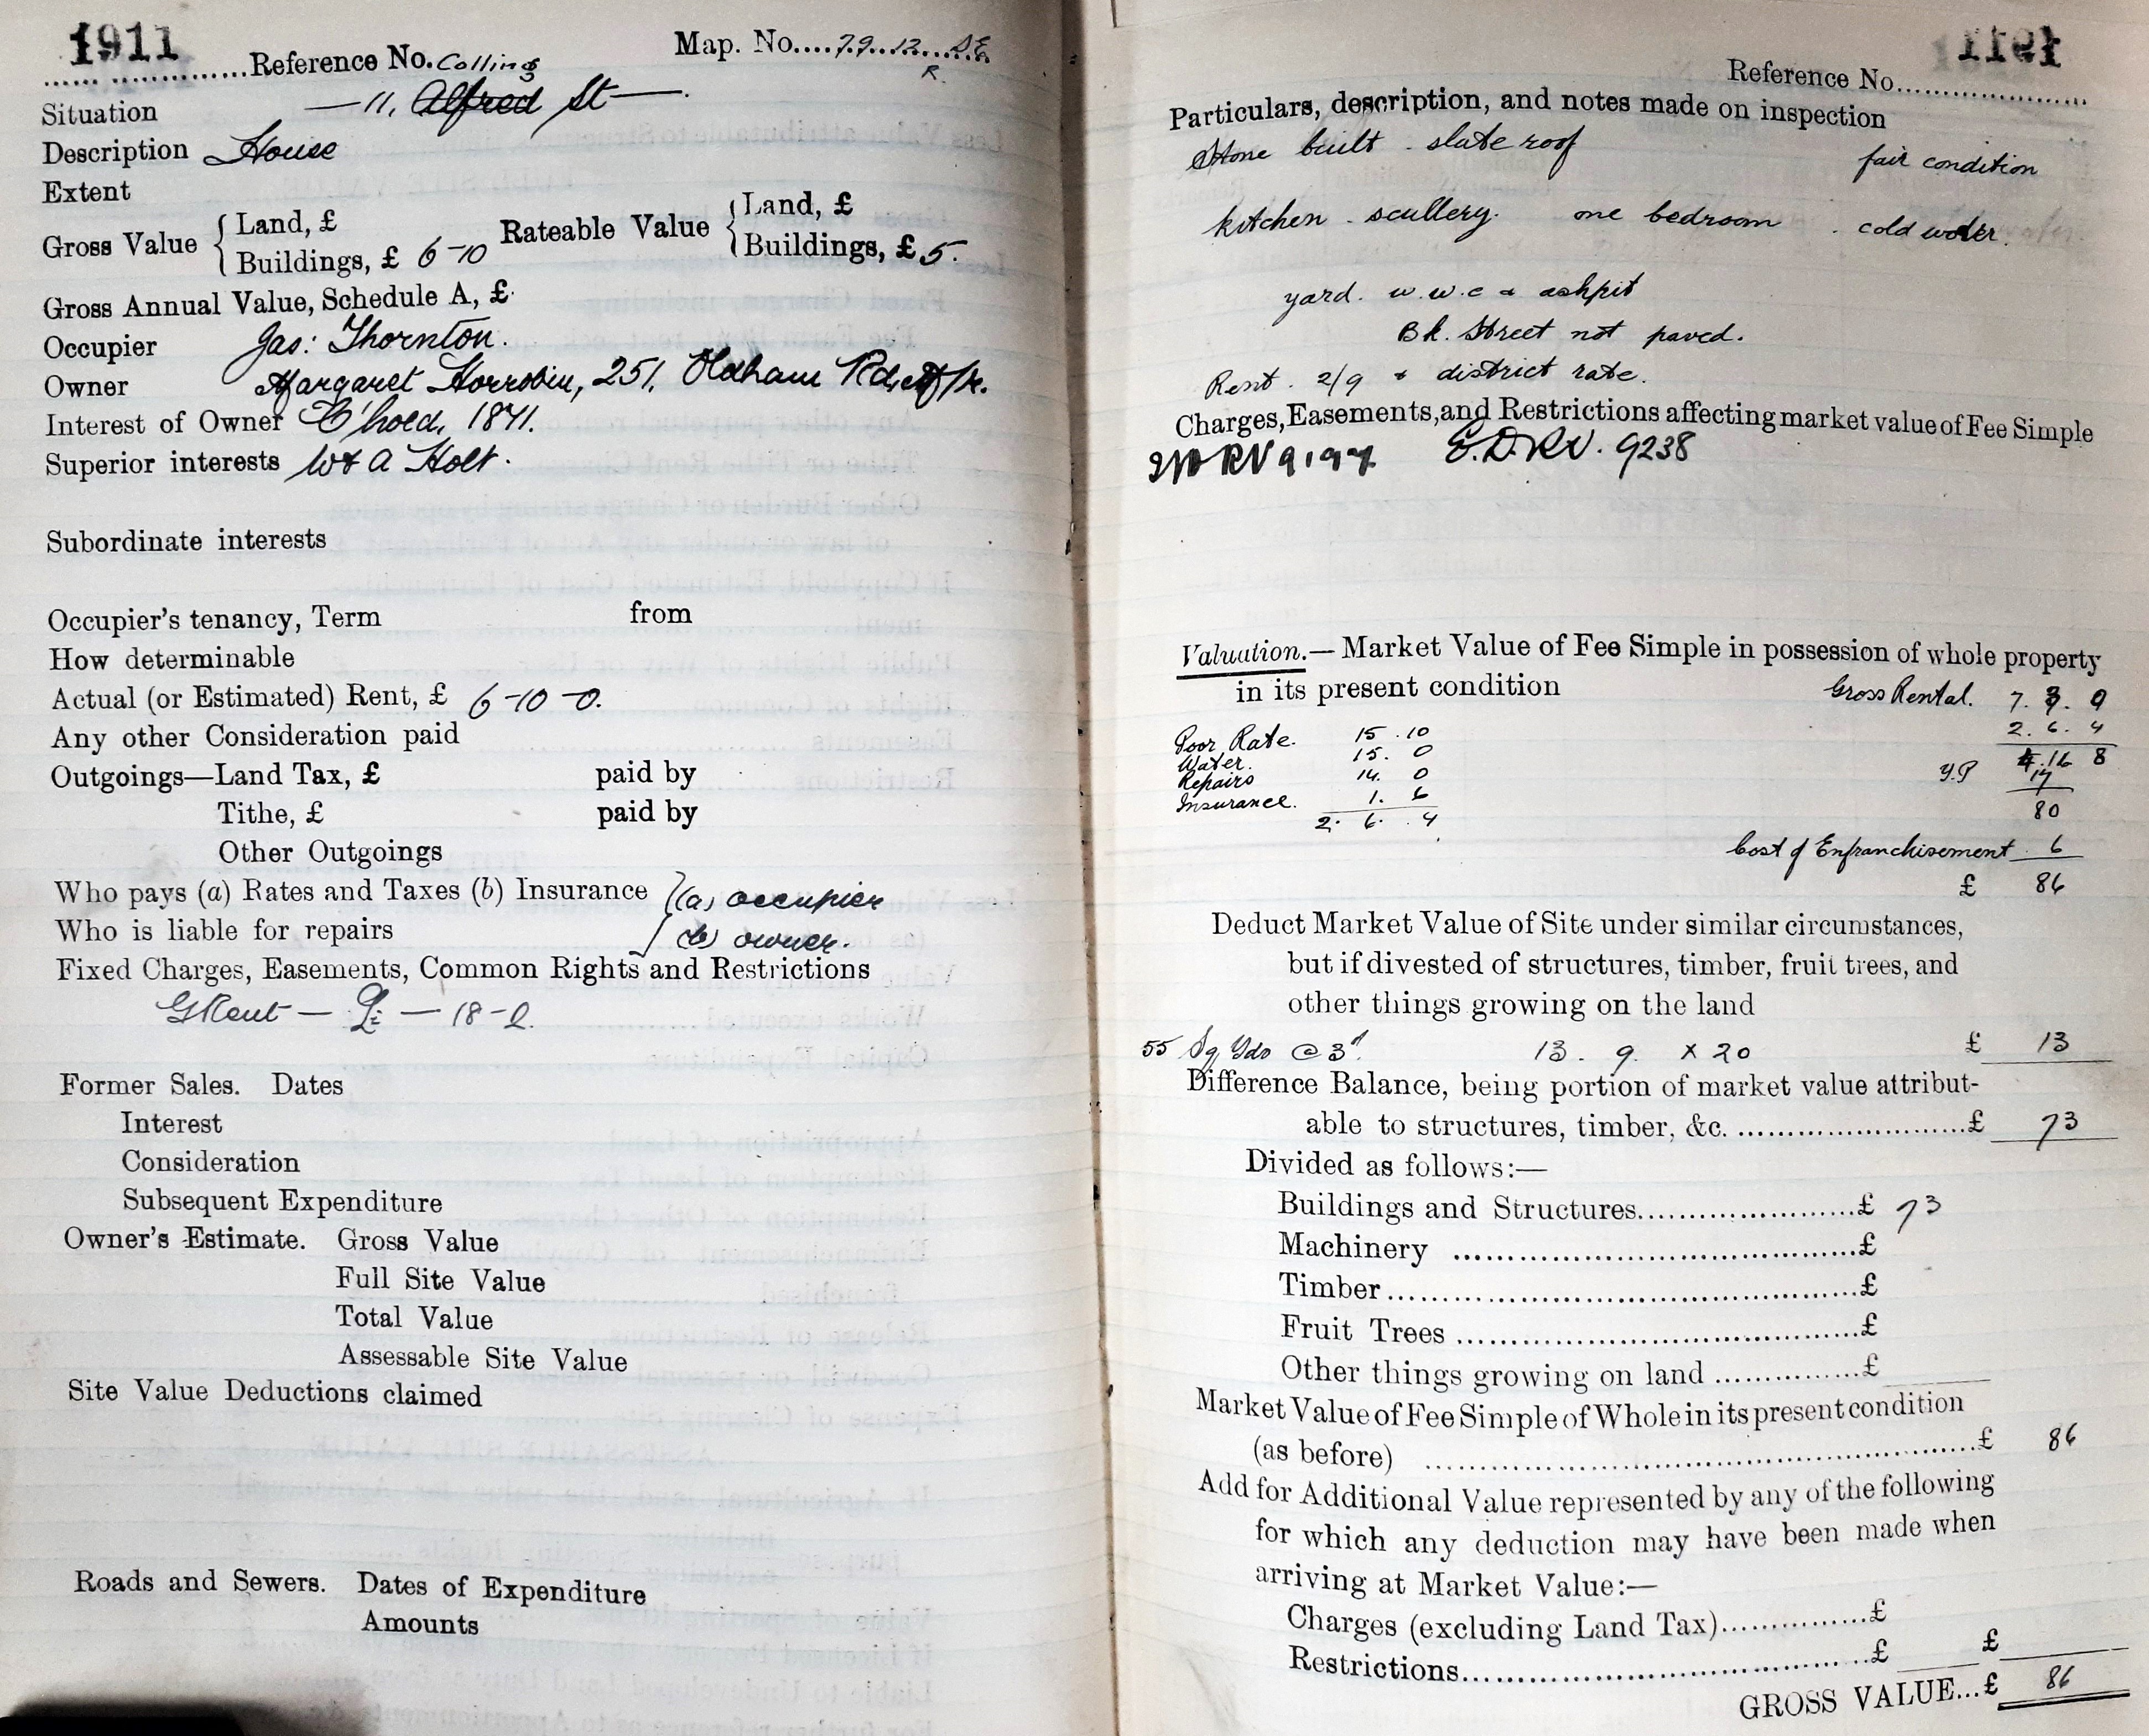 1911
Reference No. Colling
Map. No....79.12....S.E.
R.
Situation — 11, Alfred St —.
Description House
Extent
Gross Value { Land, £
Buildings, £ 6-10
Rateable Value { Land, £
Buildings, £ 5.
Gross Annual Value, Schedule A, £
Occupier Jas: Thornton.
Owner Margaret Horrobin, 251, Oldham Rd,
Interest of Owner 1841.
Superior interests W & A Holt.
Subordinate interests
Occupier's tenancy, Term from
How determinable
Actual (or Estimated) Rent, £ 6-10-0.
Any other Consideration paid
Outgoings—Land Tax, £ paid by
Tithe, £ paid by
Other Outgoings
Who pays (a) Rates and Taxes (b) Insurance } (a) occupier
Who is liable for repairs (b) owner.
Fixed Charges, Easements, Common Rights and Restrictions
GRent — — 18-
Former Sales. Dates
Interest
Consideration
Subsequent Expenditure
Owner's Estimate. Gross Value
Full Site Value
Total Value
Assessable Site Value
Site Value Deductions claimed
Roads and Sewers. Dates of Expenditure
Amounts
Reference No....................
Particulars, description, and notes made on inspection
Stone built . slate roof fair condition
kitchen . scullery. one bedroom . cold water.
yard. w.w.c & ashpit
Bk. Street not paved.
Rent. 2/9 + district rate.
Charges, Easements, and Restrictions affecting market value of Fee Simple
E.D.RV. 9238
Valuation.— Market Value of Fee Simple in possession of whole property
in its present condition Gross Rental. 7. 3. 0
2. 6. 4
Poor Rate. 15 .10
Water. 15. 0
4.16 8
Repairs 14. 0
Y.P 17
Insurance. 1. 6
80
2. 6. 4
Cost of Enfranchisement 6
£ 86
Deduct Market Value of Site under similar circumstances,
but if divested of structures, timber, fruit trees, and
other things growing on the land
55 Sq Yds @ 3d. 13. 9. x 20 £ 13
Difference Balance, being portion of market value attribut-
able to structures, timber, &c. ........................£ 73
Divided as follows:—
Buildings and Structures......................£ 73
Machinery ........................................£
Timber..............................................£
Fruit Trees ........................................£
Other things growing on land ...............£
Market Value of Fee Simple of Whole in its present condition
(as before) .....................................................£ 86
Add for Additional Value represented by any of the following
for which any deduction may have been made when
arriving at Market Value:—
Charges (excluding Land Tax)...............£
Restrictions.........................................£ £
GROSS VALUE...£ 86